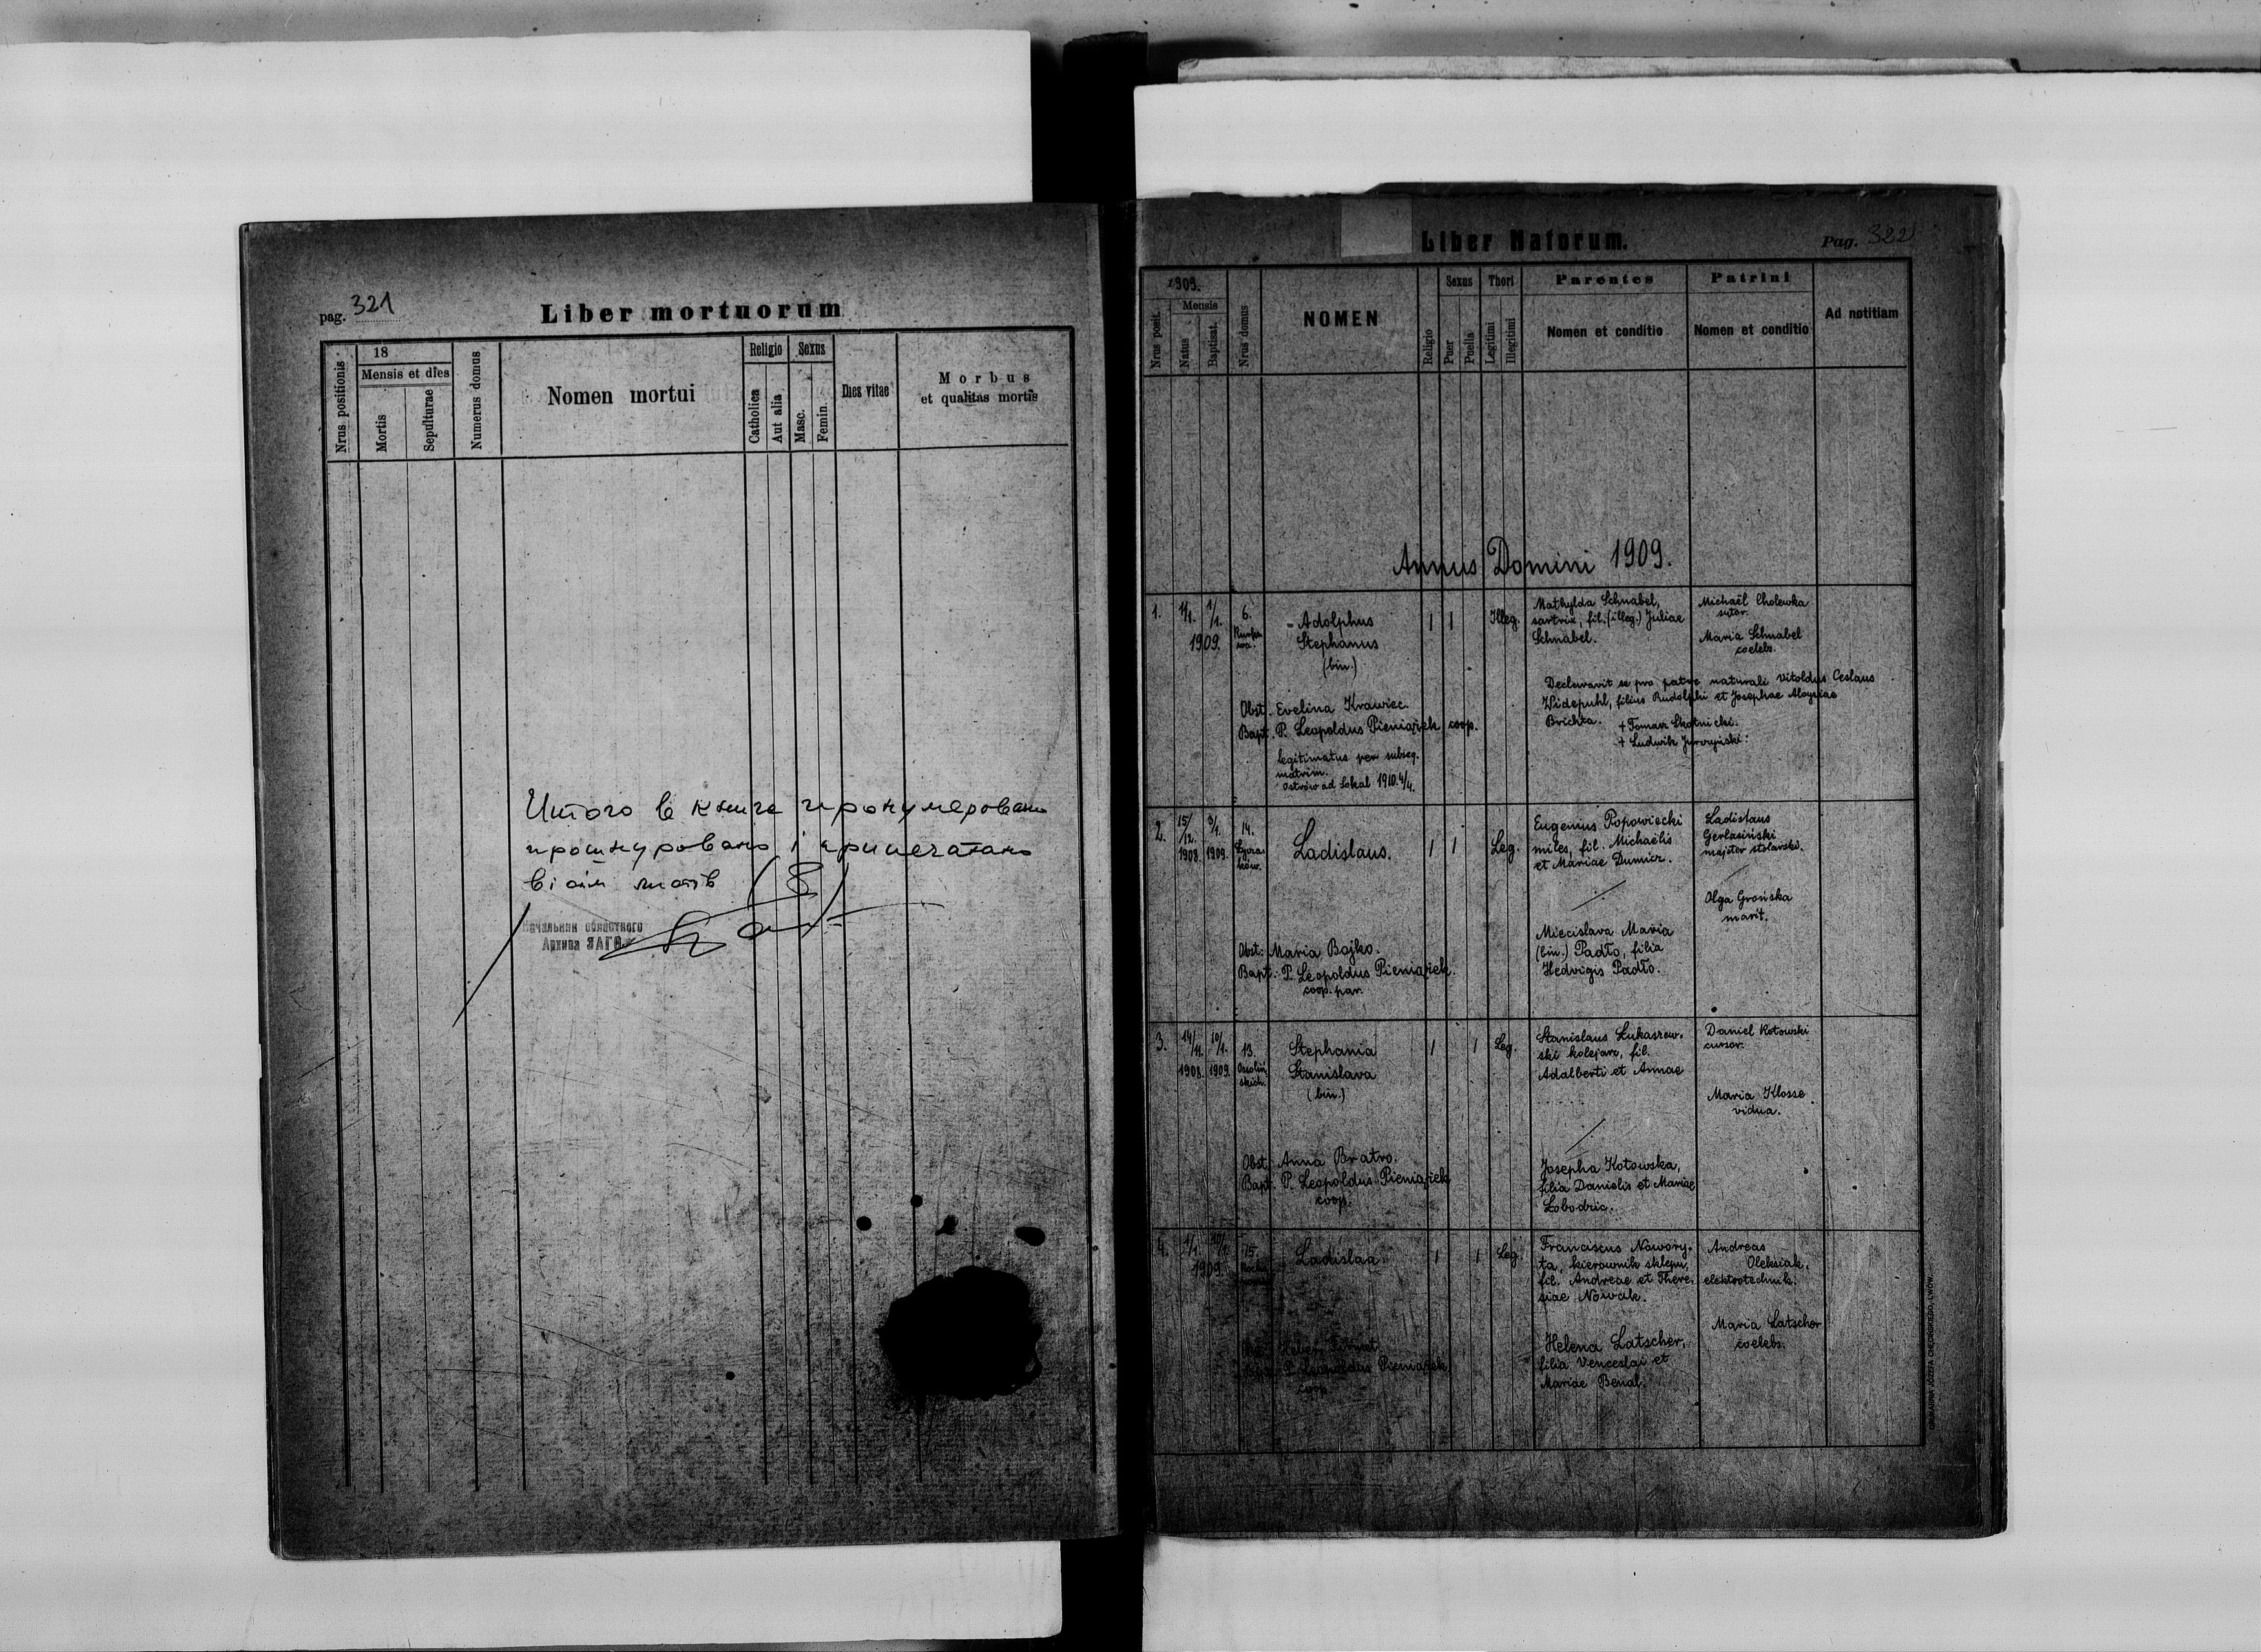 pag. 321
Liber mortuorum
Nrus positionis
18
Mensis et dies
Mortis
Sepulturae
Numerus domus
Nomen mortui
Religio
Catholica
Aut alia
Sexus
Masc.
Femin.
Dies vitae
Morbus
et qualitas mortis
Итого в книге пронумеровано
прошнуровано і припечатано
вісім листів (8)
Начальник областного
Архива ЗАГС
Liber Natorum.
Pag. 322
1909.
Nrus posit.
Mensis
Natus
Baptisat.
Nrus domus
NOMEN
Religio
Sexus
Puer
Puella
Thori
Legitimi
Illegitimi
Parentes
Nomen et conditio
Patrini
Nomen et conditio
Ad notitiam
Annus Domini 1909.
1.
1/1. 1/1.
1909.
6.
Adolphus
Stephanus
(bin.)
1 1 Illeg.
Mathylda Schnabel,
sartrix, fil. (illeg.) Juliae
Schnabel.
Michaël Cholewka
sutor.
Maria Schnabel
coelebs.
Declaravit se pro patre naturali Vitoldus Ceslaus
Widepuhl, filius Rudolphi et Josephae Aloysiae
Brichta.
+ Tomasz Skotnicki.
+ Ludwik
Obst. Evelina Krawiec.
Bapt. P. Leopoldus Pieniążek coop.
legitimatus per subseq.
matrim.
Ostrów ad Sokal 1910. 4/4.
2.
15/12. 3/1.
1908. 1909.
14.
Ladislaus.
1 1 Leg.
Eugenius Popowiecki
miles, fil. Michaëlis
et Mariae Dumicz.
Miecislava Maria
(bin.) Padło, filia
Hedvigis Padło.
Ladislaus
majster stolarski.
Olga Grońska
marit.
Obst: Maria Bojko.
Bapt: P. Leopoldus Pieniążek.
coop. par.
3.
14/11. 10/1.
1908. 1909.
13.
Ossoliń
skich.
Stephania
Stanislava
(bin.)
1 1 Leg.
Stanislaus Łukaszew-
ski kolejarz, fil.
Adalberti et Annae
Josepha Kotowska,
filia Danielis et Mariae
Łobodzic.
Daniel Kotowski
cursor.
Maria Klosse
vidua.
Obst. Anna Bratro.
Bapt. P. Leopoldus Pieniążek
coop.
4.
1/1. 10/1.
1909.
15.
Ladislaa.
1 1 Leg.
Franciscus Nawory-
ta, kierownik sklepu,
fil. Andreae et There-
siae Nowak.
Helena Latscher,
filia Venceslai et
Mariae Benal.
Andreas
Oleksiak,
elektrotechnik.
Maria Latscher
coelebs.
P. Leopoldus Pieniążek
coop.
DRUKARNIA JÓZEFA CHĘCIŃSKIEGO, LWÓW.